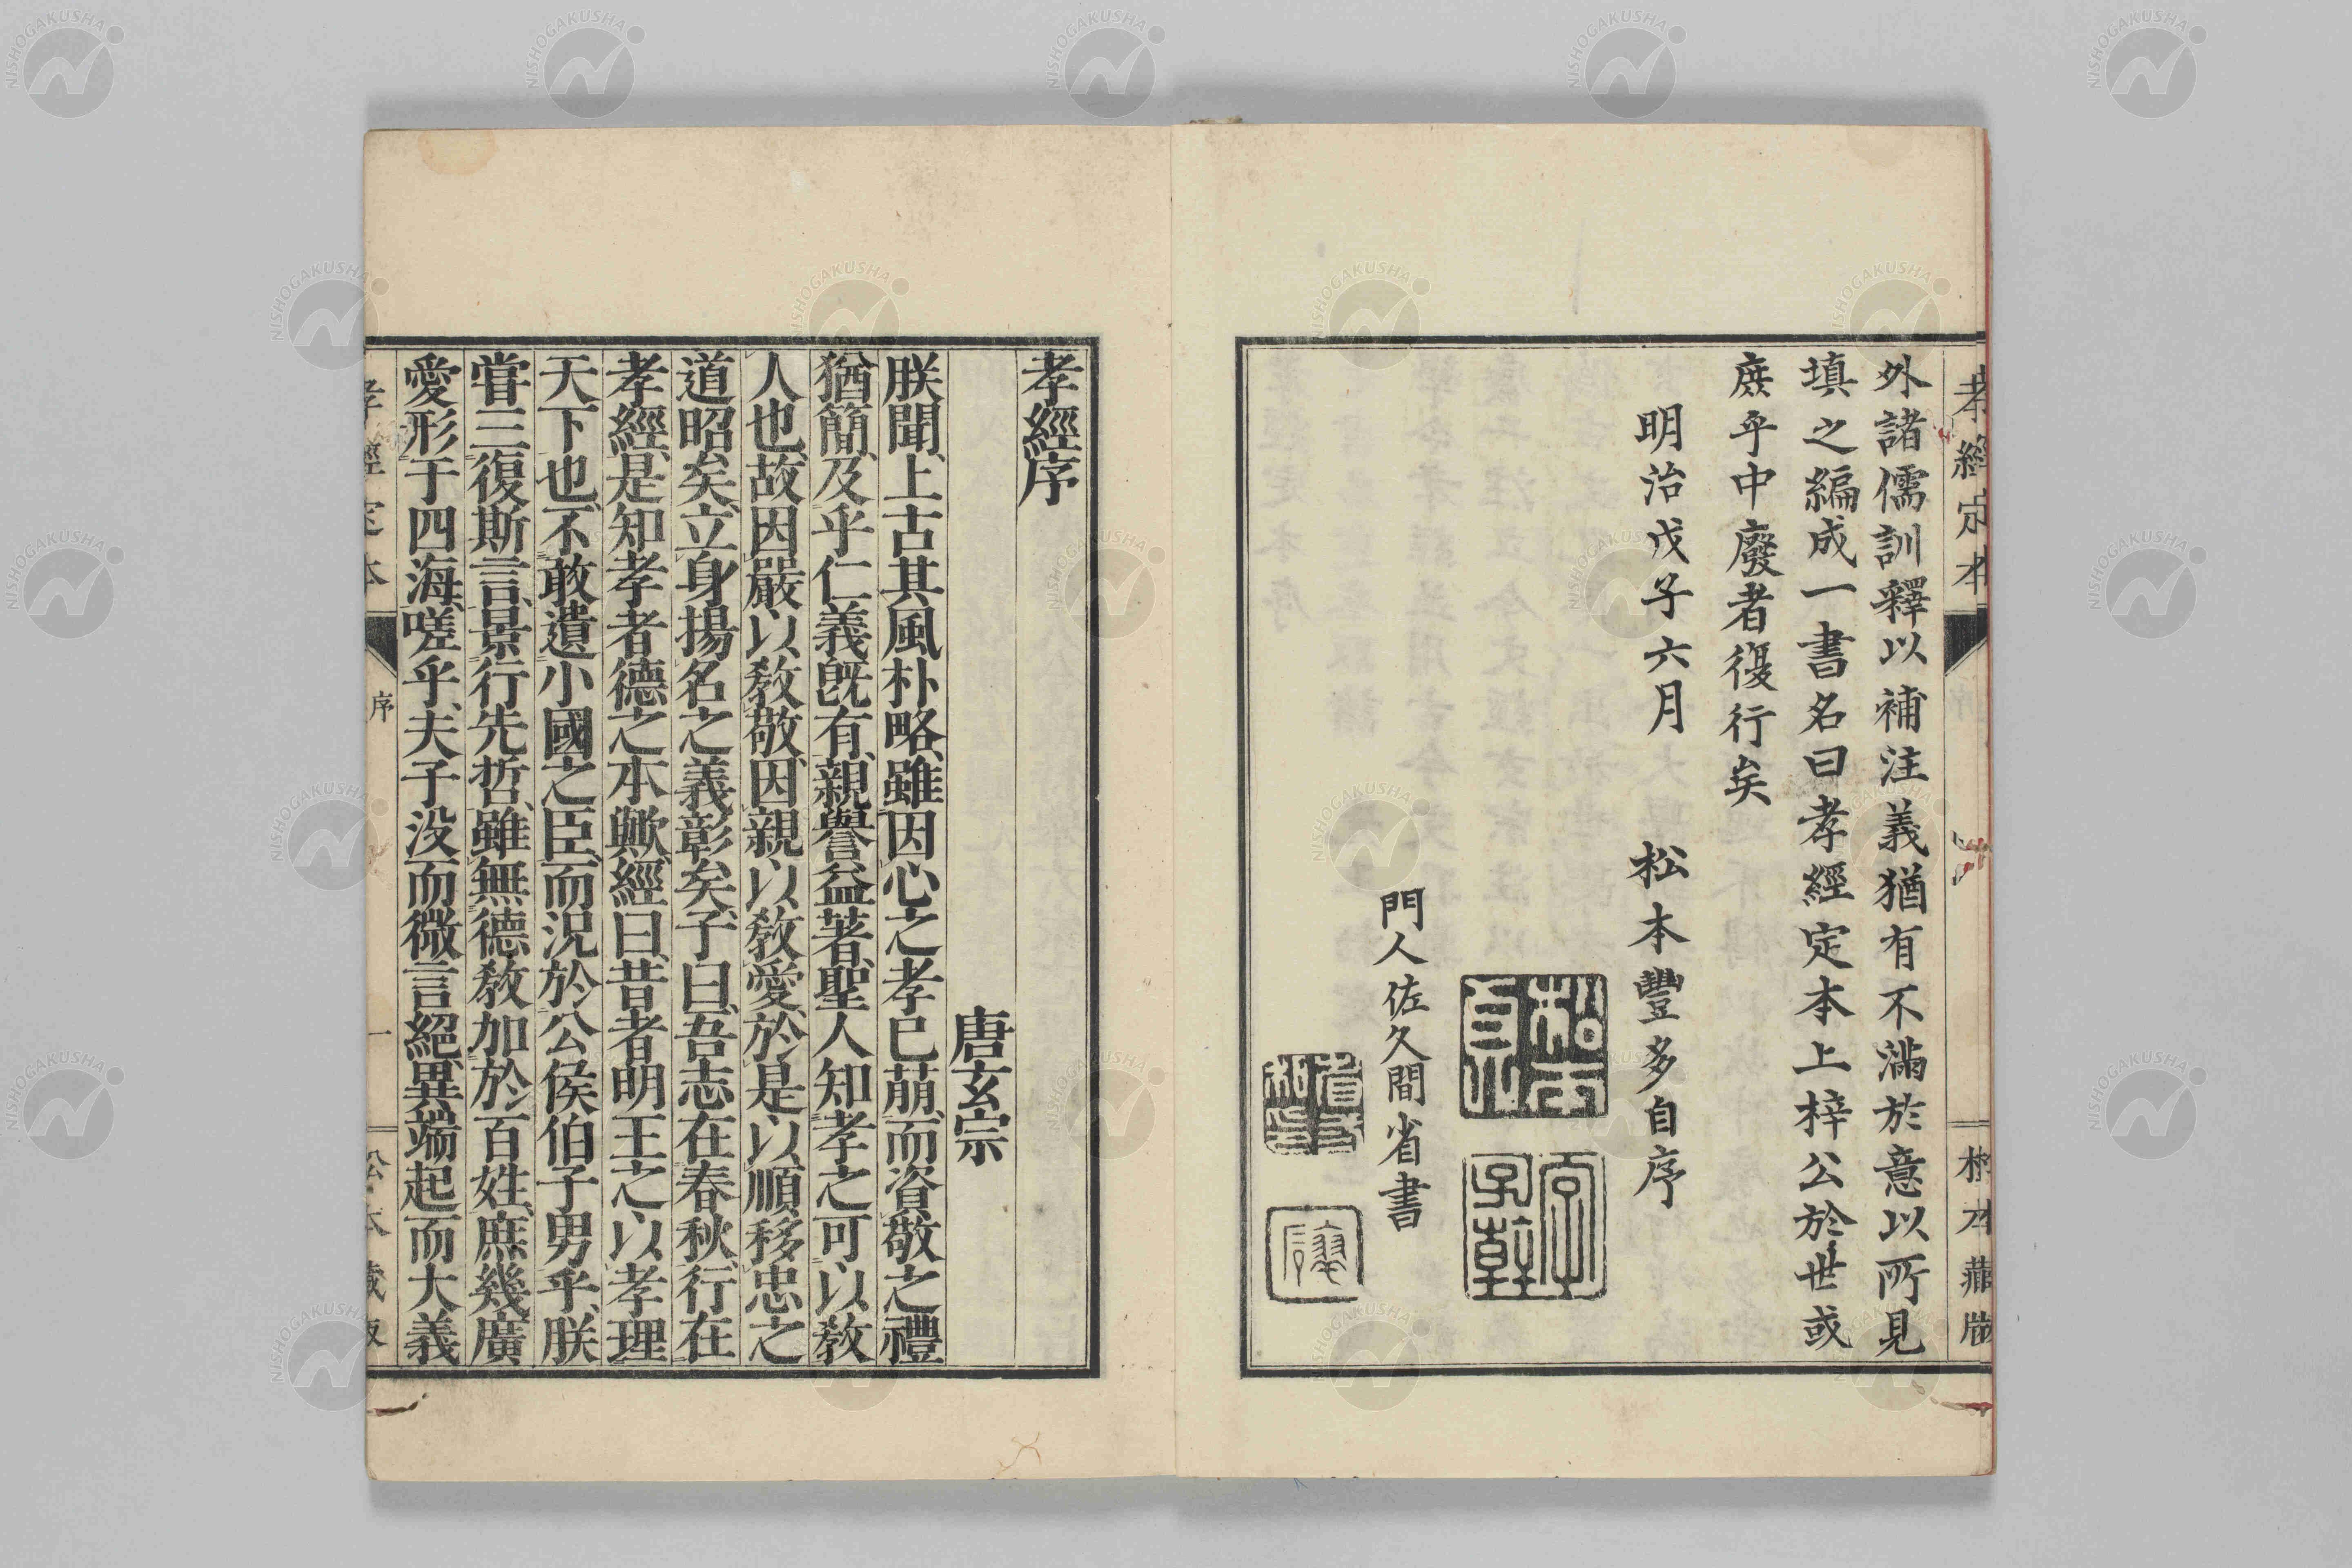 孝經定本
序
松本藏版
外諸儒訓釋以補注義猶有不滿於意以所見
填之編成一書名曰孝經定本上梓公於世或
庶乎中廢者復行矣
明治戊子六月
松本豐多自序
門人佐久間省書
孝經序
唐玄宗
朕聞、上古其風朴略、雖因心之孝已萌、而資敬之禮
猶簡、及乎仁義既有、親譽益著、聖人知孝之可以教
人也、故因嚴以教敬、因親以教愛、於是以順移忠之
道昭矣、立身揚名之義彰矣、子曰、吾志在春秋、行在
孝經、是知孝者德之本歟、經曰、昔者明王之以孝理
天下也、不敢遺小國之臣、而況於公侯伯子男乎、朕
嘗三復斯言、景行先哲、雖無德教加於百姓、庶幾廣
愛形于四海、嗟乎、夫子没而微言絕、異端起而大義
孝經定本
序
一
松本藏版
NISHOGAKUSHA